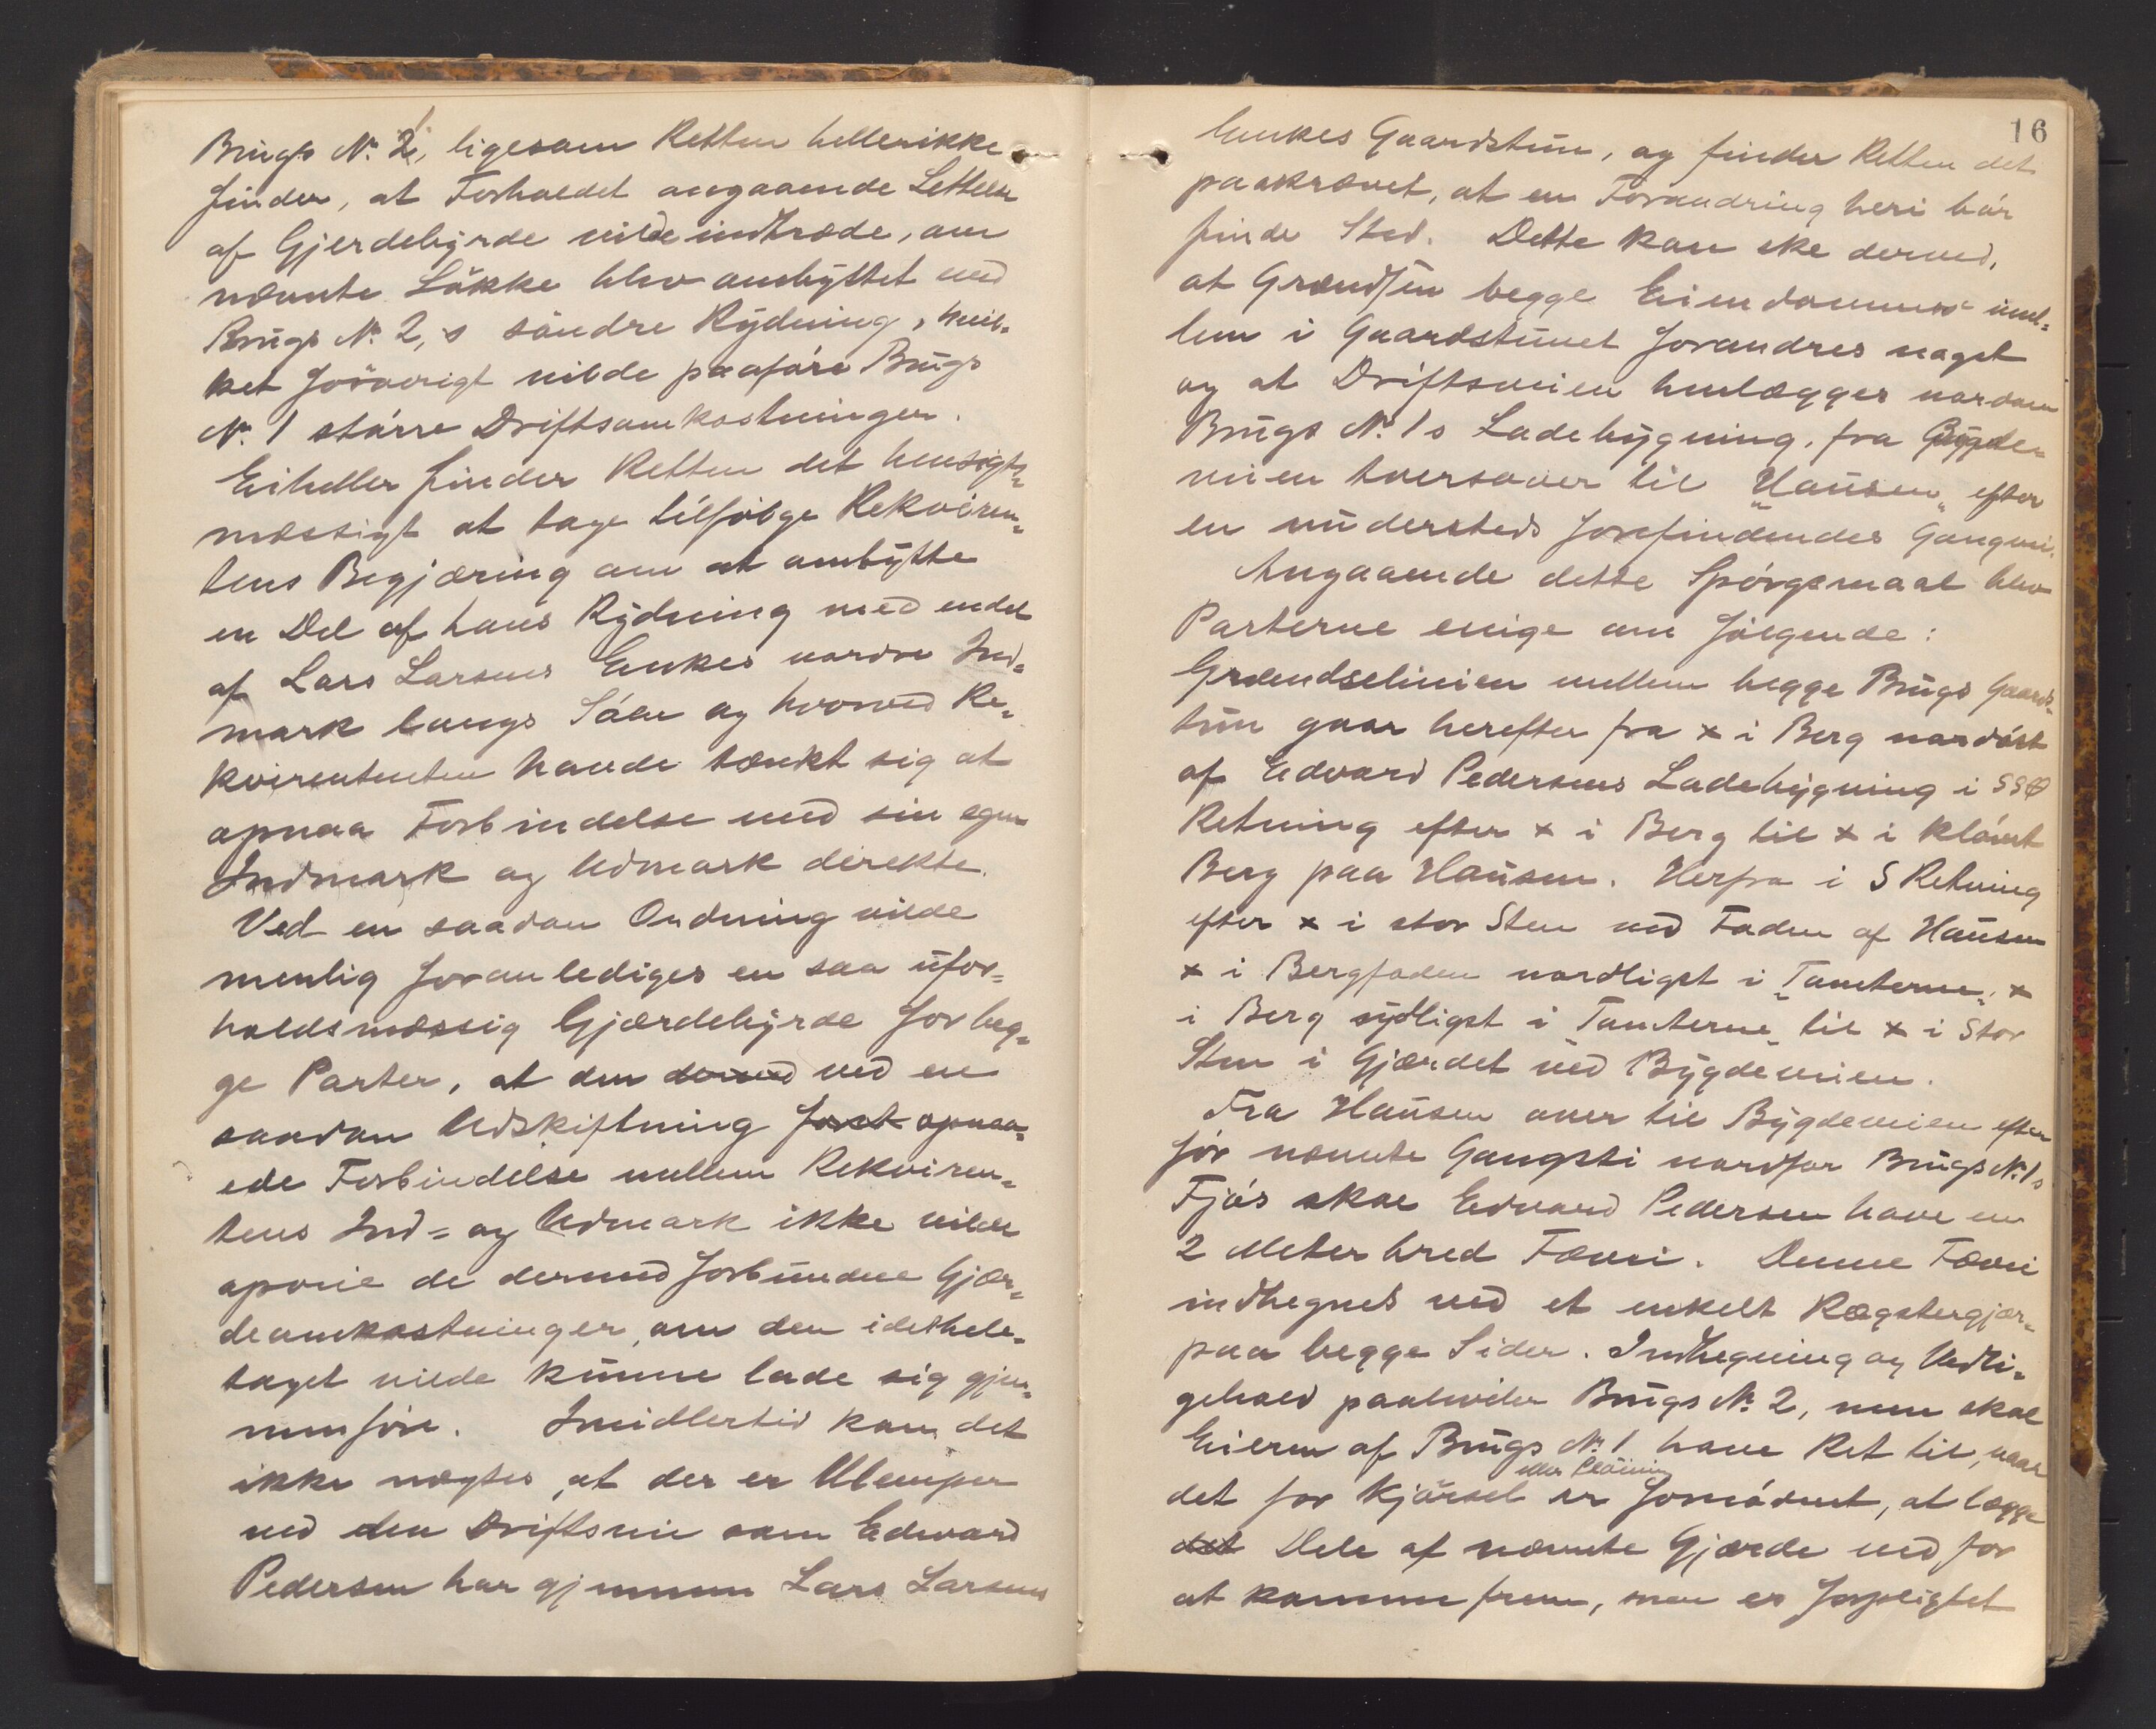 Brugs No. 2, ligesom Retten hellerikke
finder, at Forholdet angaaende Lettelse
af Gjerdebyrde vilde indtræde, om
nævnte Løkke blev ombyttet med
Brugs No. 2,s søndre Rydning, hvil-
ket forøvrigt vilde paaføre Brugs
No. 1 større Driftsomkostninger.
Eiheller finder Retten det hensigts-
mæssigt at tage tilfølge Rekviren-
tens Begjæring om at ombytte
en Del af hans Rydning med endel
af Lars Larsens Enkes nordre Ind-
mark langs Søen og hvorved Re-
kvirententen havde tænkt sig at
opnaa Forbindelse med sin egen
Indmark og Udmark direkte.
Ved en saadan Ordning vilde
menlig foranlediges en saa ufor-
holdsmæssig Gjærdebyrde for beg-
ge Parter, at den derved ved en
saadan Udskiftning forst opnaa-
ede Forbindelse mellem Rekviren-
tens Ind- og Udmark ikke vilde
opveie de dermed forbundne Gjær-
deomkostninger, om den idethele-
taget vilde kunne lade sig gjen-
nemføre. Imidlertid kan det
ikke nægtes, at der er Ulemper
ved den Driftsvei som Edvard
Pedersen har gjennem Lars Larsens
16
Enkes Gaardstun, og finder Retten det
paakrævet, at en Forandring heri bør
finde Sted. Dette kan ske derved,
at Grændsen begge Eiendommes imel-
lem i Gaardstunet forandres noget
og at Driftsveien henlægges nordom
Brugs No. 1s Ladebygning, fra Bygde-
veien tversover til "Hausen" efter
en sudersteds forefindendes Gangvei.
Angaaende dette Spørgsmaal blev
Parterne enige om følgende:
Grændselinien mellem begge Brugs Gaards-
tun gaar herefter fra x i Berg nordøst
af Edvard Pedersens Ladebygning i SSØ
Retning efter x i Berg til x i kløvet
Berg paa Hausen. Herfra i S Retning
efter x i stor Sten ved Foden af Hausen
x i Bergfoden nordligst i "Tomterne", x
i Berg sydligst i Tomterne til x i Stor
Sten i Gjærdet ved Bygdeveien.
Fra Hausen over til Bygdeveien efter
før nævnte Gangsti nordfor Brugs No. 1s
Fjøs skal Edvard Pedersen have en
2 Meter bred Fævei. Denne Fævei
indhegnes ved et enkelt Rægstergjær-
paa begge Sider. Indhegning og Vedli-
gehold paahviler Brugs No. 2, men skal
Eieren af Brugs No. 1 have Ret til, naar
eller Pløining
det for Kjørsel er fornødent, at lægge
det Dele af nævnte Gjærde ned for
at komme frem, men er forpligtet